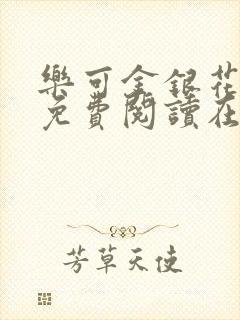 樂可金銀花
免費閱讀在
芳草天使